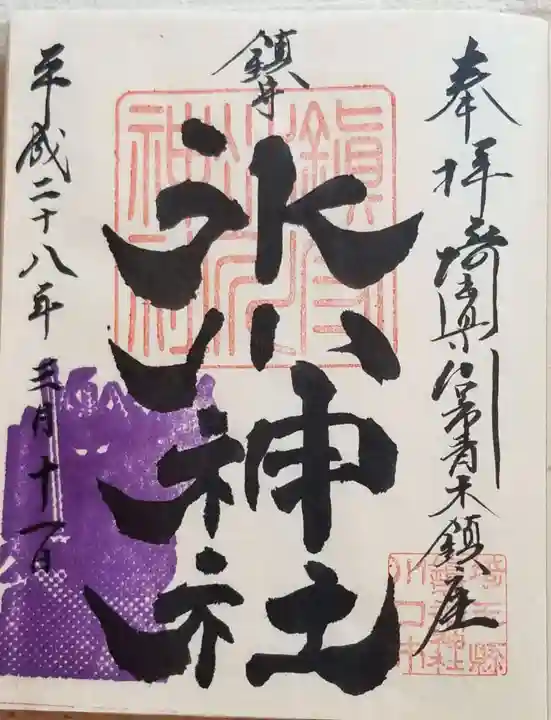 奉拝 埼玉県川口市青木鎮座
鎮守
氷川神社
平成二十八年三月十一日
鎮守
氷川
神社
埼玉縣
川口市